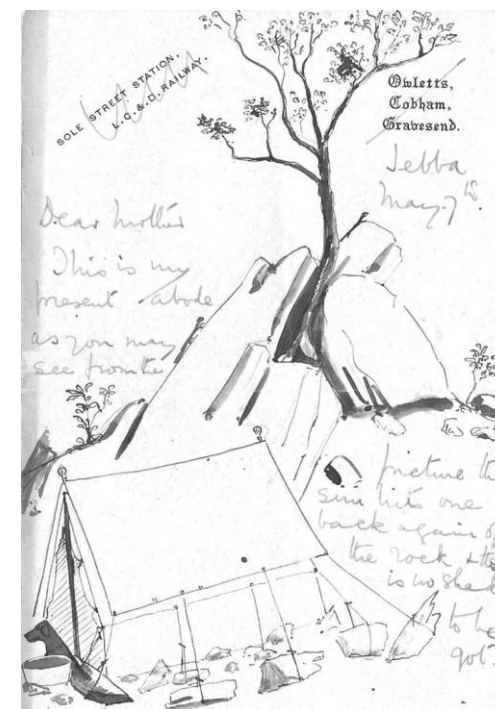 SOLE STREET STATION,
L.C. & D. RAILWAY.
Owletts,
Cobham,
Gravesend.
Jebba
May 7th
Dear Mother
This is my
present abode
as you may
see from the
picture the
sun hits one
back again off
the rock & there
is no shade
to be
got.